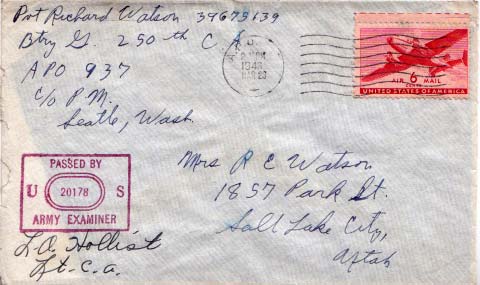 Pvt Richard Watson 39679139
Btry G. 250th C A
APO 937
c/o P.M.
Seatle, Wash.
A.P.O.
1943
MAR 23
6
CENTS
AIR MAIL
UNITED STATES OF AMERICA
Mrs R E Watson
1857 Park St.
Salt Lake City,
Utah
PASSED BY
U 20178 S
ARMY EXAMINER
L.A. Hollist
Lt. C.A.